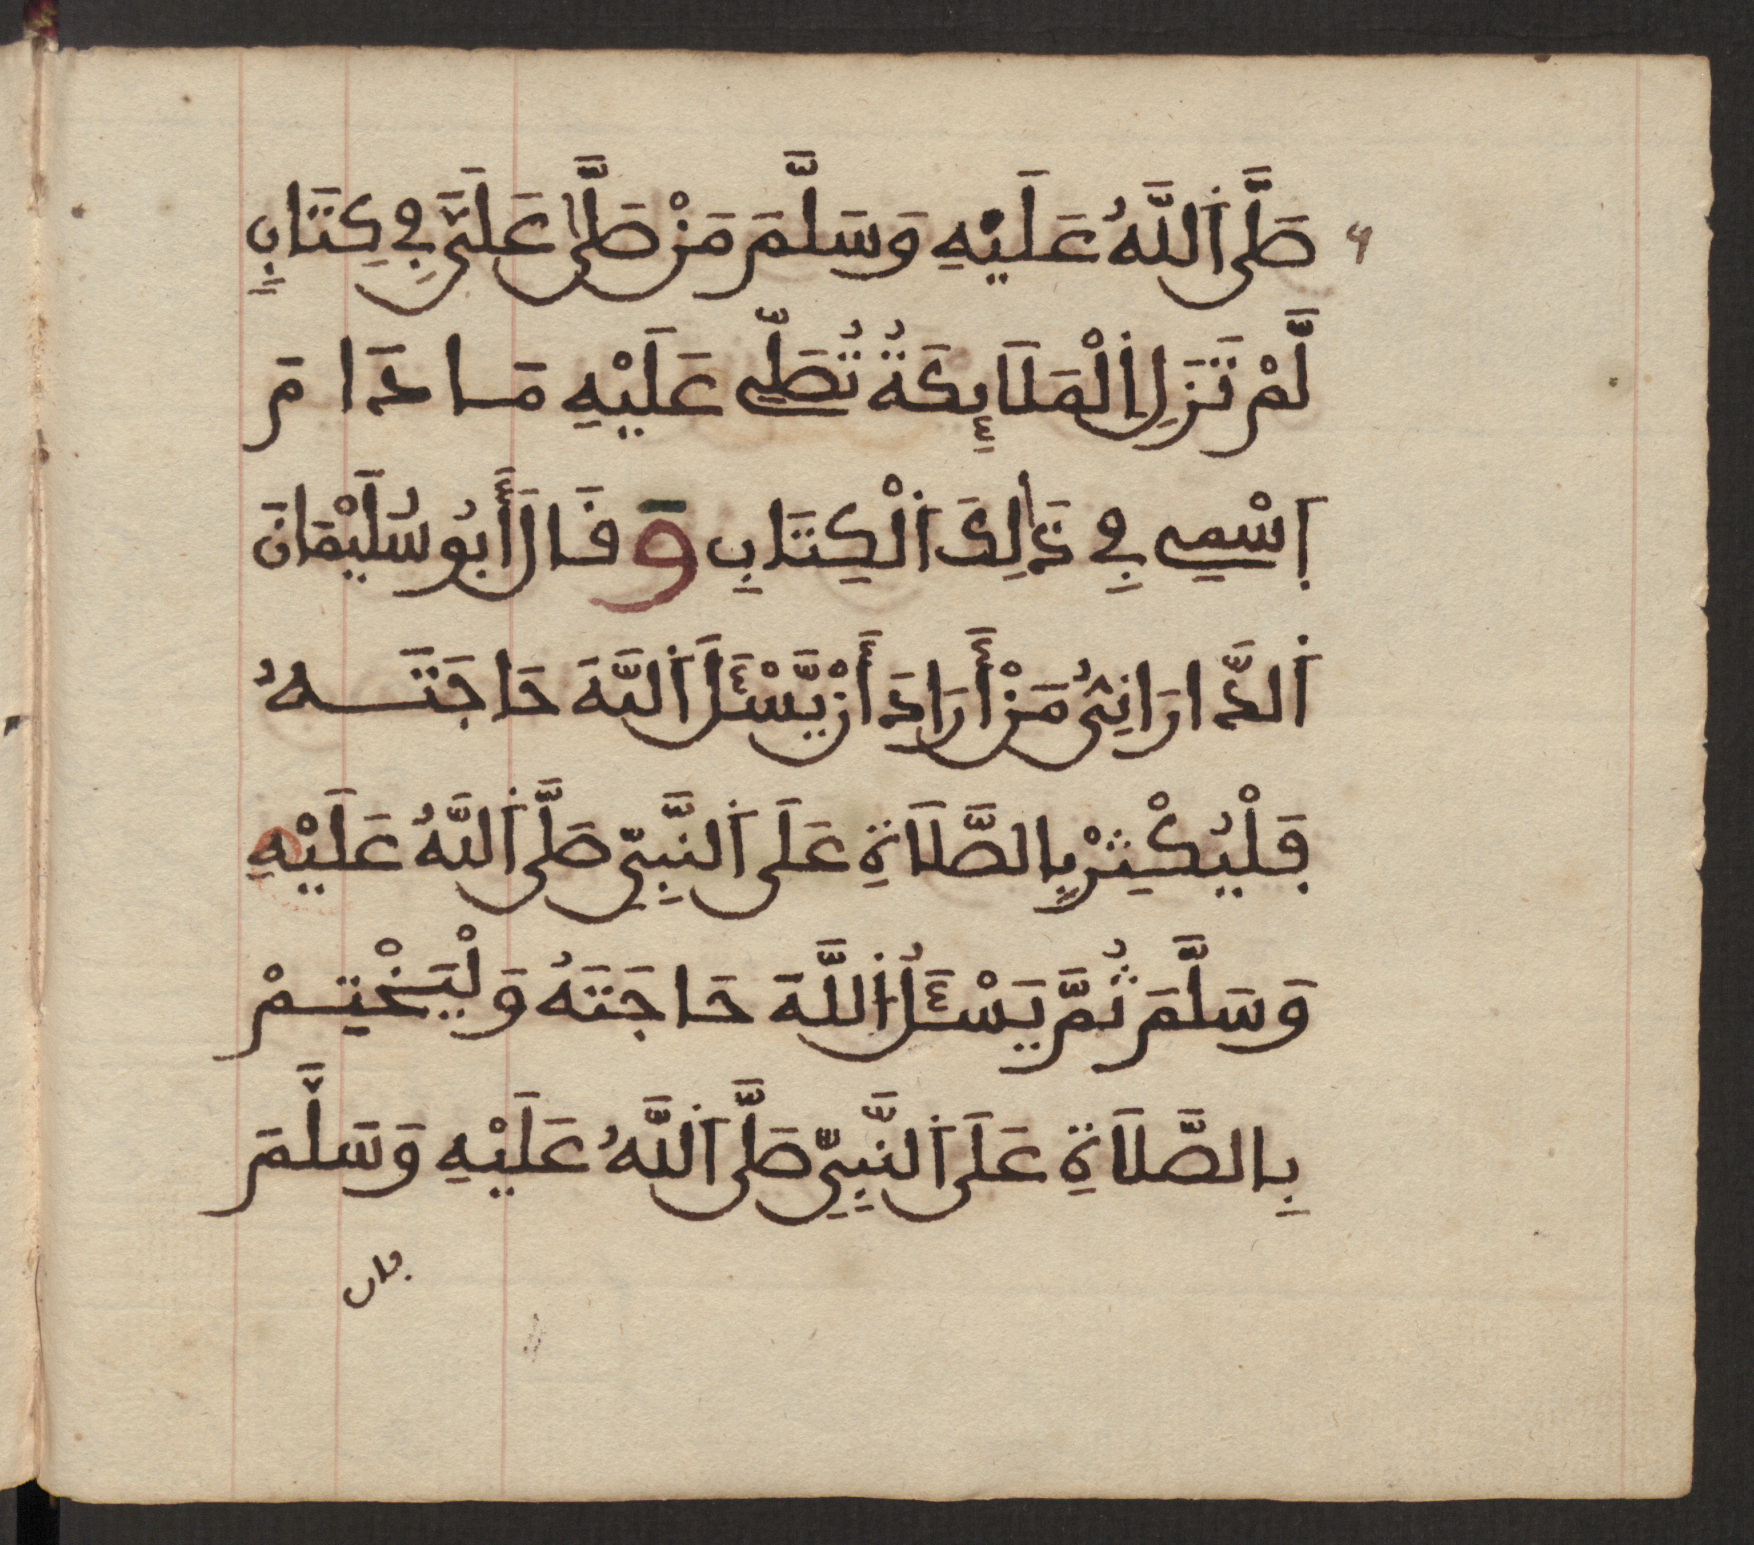 صَلَّى اَللَّهُ عَلَيْهِ وَسَلَّمَ مَنْ صَلَّىٰ عَلَيَّ فِي كِتَابٍ
لَّمْ تَزَلِ اِلْمَلَآئِكَةُ تُصَلِّي عَلَيْهِ مَا دَامَ
اِسْمِي فِي ذَٰلِكَ اَلْكِتَابِ وَقَالَ أَبُو سُلَيْمَانَ
اَلدَّارَانِيُّ مَنْ أَرَادَ أَنْ يَّسْـَٔلَ اَللَّهَ حَاجَتَهُ
فَلْيُكْثِرْ بِالصَّلَاةِ عَلَى اَلنَّبِيِّ صَلَّى اَللَّهُ عَلَيْهِ
وَسَلَّمَ ثُمَّ يَسْـَٔلُ اُللَّهَ حَاجَتَهُ وَلْيَخْتِمْ
بِالصَّلَاةِ عَلَى اَلنَّبِيِّ صَلَّى اَللَّهُ عَلَيْهِ وَسَلَّمَ
فان